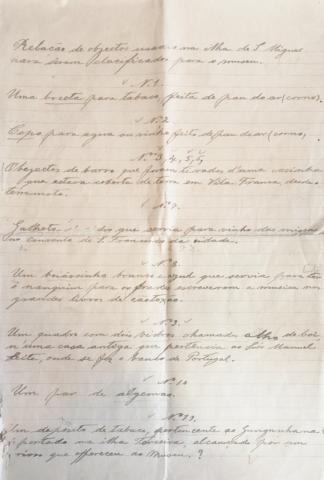 Relação de objectos usados na ilha de S. Miguel
para serem classificados para o museu.
Nº 1
Uma boceta para tabaco, feita de pau do ar (corno).
Nº 2
Copo para agua ou vinho feito de pau de ar (corno)
Nºs 3, 4, 5, 6
Objectos de barro que foram tirados d'uma casinha
que esteve coberta de terra em Villa Franca, desde
terramoto.
Nº 7
Galheta que servia para vinho das missas
no convento de S. Francisco da cidade.
Nº 8
Um boiãosinho branco e azul que servia para
o manguim para os frades escreverem a musica nos
grandes livros de cantochão.
Nº 9
Um quadro com dois vidros chamado olho de boi
n'uma casa antiga que pertencia ao Luis Manuel
Leite, onde se fez o banco de Portugal.
Nº 10
Um par de algemas.
Nº 11
Um deposito de tabaco, pertencente ao Gungunhana
portado na ilha Terceira, alcançado por um
que offereceu ao Museu. ?